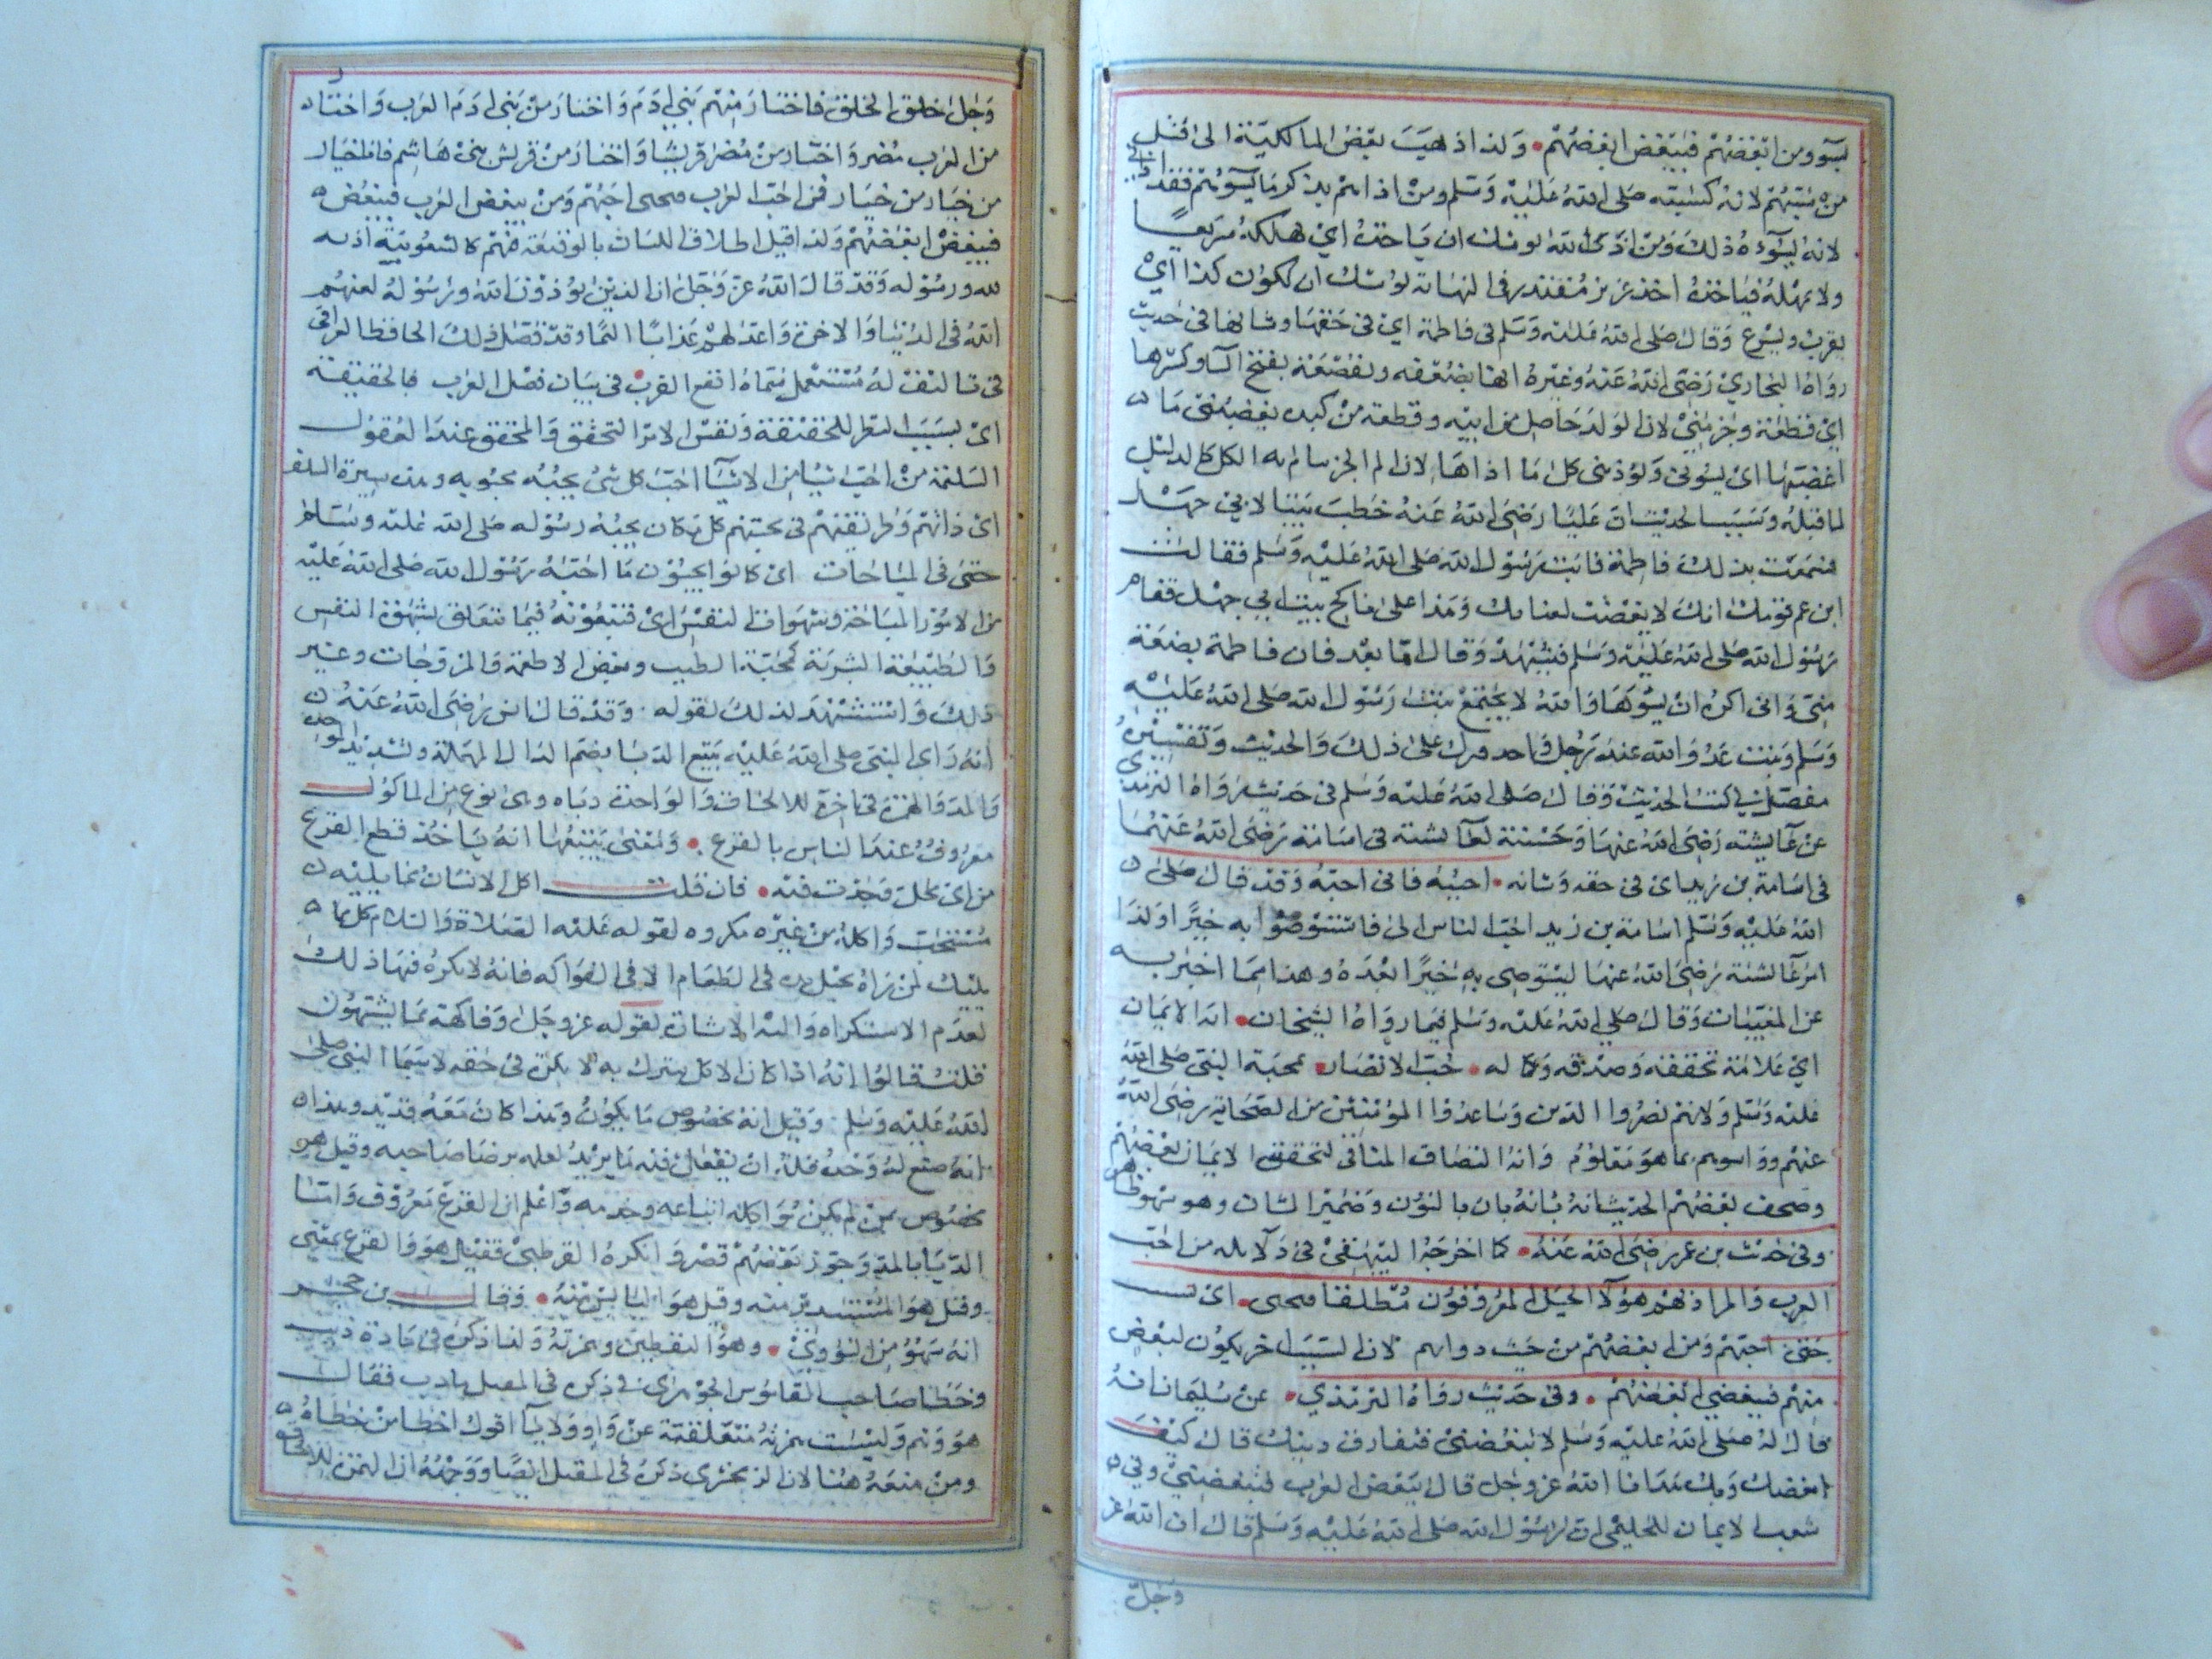 بسوء ومن ابغضهم فببغضي ابغضهم • ولذا ذهبت بعض المالكية الى قتل
من سبهم لانه كسبه صلى الله عليه وسلم ومن اذاهم بذكر ما يسوءهم فقد اذاني
لانه يسوءه ذلك ومن اذى الله يوشك ان ياخذه اي يهلكه سريعا
ولا يمهله فياخذه اخذ عزيز مقتدر في النهاية يوشك ان يكون كذا اي
يقرب ويسرع وقال صلى الله عليه وسلم في فاطمة اي في حقها وشانها في حديث
رواه البخاري رضي الله عنه وغيره انها بضعة بفتح الباء وكسرها
اي قطعة وجزء مني لان الولد حاصل من ابيه وقطعة من كبده يغضبني ما
اغضبها اي يسوءني ويؤذيني كل ما اذاها لان الم الجزء الم الكل كالدليل
لما قبله وسبب الحديث ان عليا رضي الله عنه خطب بنتا لابي جهل
فسمعت بذلك فاطمة فاتت رسول الله صلى الله عليه وسلم فقالت
يزعم قومك انك لا تغضب لبناتك وهذا علي ناكح بنت ابي جهل فقام
رسول الله صلى الله عليه وسلم فتشهد وقال اما بعد فان فاطمة بضعة
مني واني اكره ان يسوءها والله لا يجتمع بنت رسول الله صلى الله عليه
وسلم وبنت عدو الله عند رجل واحد فترك علي ذلك والحديث وتفسيره
مفصل في كتب الحديث وقال صلى الله عليه وسلم في حديث رواه الترمذي
عن عايشة رضي الله عنها وحسنه لعائشة في اسامة رضي الله عنهما
في اسامة بن زيد اي في حقه وشانه • احبيه فاني احبه وقد قال صلى
الله عليه وسلم اسامة بن زيد احب الناس الي فاستوصوا به خيرا ولذا
امر عائشة رضي الله عنها ليستوصى به خيرا بعده وهذا مما اخبر به
عن المغيبات وقال صلى الله عليه وسلم فيما رواه الشيخان • اية الايمان
اي علامة تحققه وصدقه وكماله • حب الانصار • لمحبة النبي صلى الله
عليه وسلم ولانهم نصروا الدين وساعدوا المؤمنين من الصحابة رضي الله
عنهم وواسوهم بما هو معلوم
وصحف بعضهم الحديث انه بانه بان بالنون وضمير الشان وهو سهو ظاهر
وفي حديث بن عمر رضي الله عنه • كما اخرجه البيهقي في دلائله من احب
العرب والمراد بهم هؤلاء الجيل المعروفون مطلقا فبحبي • اي بسبب
حبي احبهم ومن ابغضهم من حيث ذواتهم لان السبب اخر يكون لبعض
منهم فببغضي ابغضهم • وفي حديث رواه الترمذي • عن سليمان انه
قال له صلى الله عليه وسلم لا تبغضني فتفارق دينك قال كيف
ابغضك وبك هدانا الله عز وجل قال تبغض العرب فتبغضني وفي
شعب الايمان للحليمي ان رسول الله صلى الله عليه وسلم قال ان الله عز
وجل
وجل خلق الخلق فاختار منهم بني ادم واختار من بني ادم العرب واختار
من العرب مضر واختار من مضر قريشا واختار من قريش بني هاشم فانا خيار
من خيار من خيار فمن احب العرب فبحبي احبهم ومن يبغض العرب فببغضي
فببغضي ابغضهم ولذا قيل اطلاق اللسان بالوقيعة فيهم كالشعوبية اذية
لله ورسوله وقد قال الله عز وجل ان الذين يؤذون الله ورسوله لعنهم
الله في الدنيا والاخرة واعد لهم عذابا اليما وقد فصل ذلك الحافظ العراقي
في تاليف له مستقل سماه القرب في بيان فضل العرب فبالحقيقة
اي بسبب النظر للحقيقة ونفس الامر التحقق والمحقق عند العقول
السليمة من احب شيئا من الاشياء احب كل شئ يحبه محبوبه وهذه سيرة السلف
اي دابهم وطريقتهم في محبتهم كل من كان يحبه رسوله صلى الله عليه وسلم
حتى في المباحات اي كانوا يحبون ما احبه رسول الله صلى الله عليه
من الامور المباحة وشهوات النفس اي فيتبعونه فيما تتعلق بشهوة النفس
والطبيعة البشرية كمحبة الطيب وبعض الاطعمة والزوجات وغير
ذلك واستشهد لذلك بقوله • وقد قال انس رضي الله عنه
انه راى النبي صلى الله عليه يتبع الدبا بضم الدال المهملة وتشديد الموحدة
والمد والهمزة في اخره للالحاق والواحدة دباه وهي نوع من الماكول
معروف عند الناس بالقرع • ومعنى يتبعها انه ياخذ قطع القرع
من اي محل وجدت فيه • فان قلت اكل الانسان مما يليه
مستحب واكله من غيره مكروه لقوله عليه الصلاة والسلام كل مما
يليك لمن راه يحيل يده في الطعام الا في الفواكه فانه لا يكره فيها ذلك
لعدم الاستكراه واليه الاشارة بقوله عز وجل وفاكهة مما يشتهون
قلت قالوا انه اذا كان الاكل يتبرك به لا يكره في حقه لا سيما النبي صلى
الله عليه وسلم • وقيل انه مخصوص بما يكون وهذا كان معه قديد وهذا
انه صنع له وحده فله ان يفعل فيه ما يريد لعله برضا صاحبه وقيل هو
مخصوص بمن لم يكن مواكله اتباعه وخدمه واعلم ان القرع معروف واما
الدبا بالمد وجوز بعضهم قصره وانكره القرطبي فقيل هو والقرع بمعنى
وقيل هو المستدير منه وقيل هو اليابس منه • وقال بن حجر
انه سهو من النووي • وهو اليقطين وهمزته ولذا ذكره في مادة دبب
وخطا صاحب القاموس الجوهري في ذكره في المعتل فقال
هو وهم وليست همزته منقلبة عن واو ولا ياء اقول اخطا من خطاه
ومن تبعه هنا لان الزمخشري ذكره في المعتل ايضا ووجهه ان الهمزة للالحاق